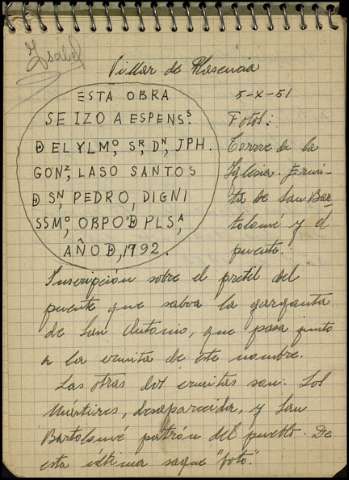 Ysabel
Villar de Plasencia
ESTA OBRA
SE IZO A ESPENS.S
D EL YLMO, SR, DN, JPH.
GONZ, LASO SANTOS
D SN, PEDRO, DIGNI
SSMO, OBPO D PLS,A
AÑO D, 1792.
5-X-51
Fotos:
Torre de la
Iglesia. Ermi-
ta de San Bar-
tolomé y el
puente.
Inscripción sobre el pretil del
puente que salva la garganta
de San Antonio, que pasa junto
a la ermita de este nombre.
Las otras dos ermitas son: Los
Mártires, desaparecida, y San
Bartolomé patrón del pueblo. De
esta última saqué "foto".